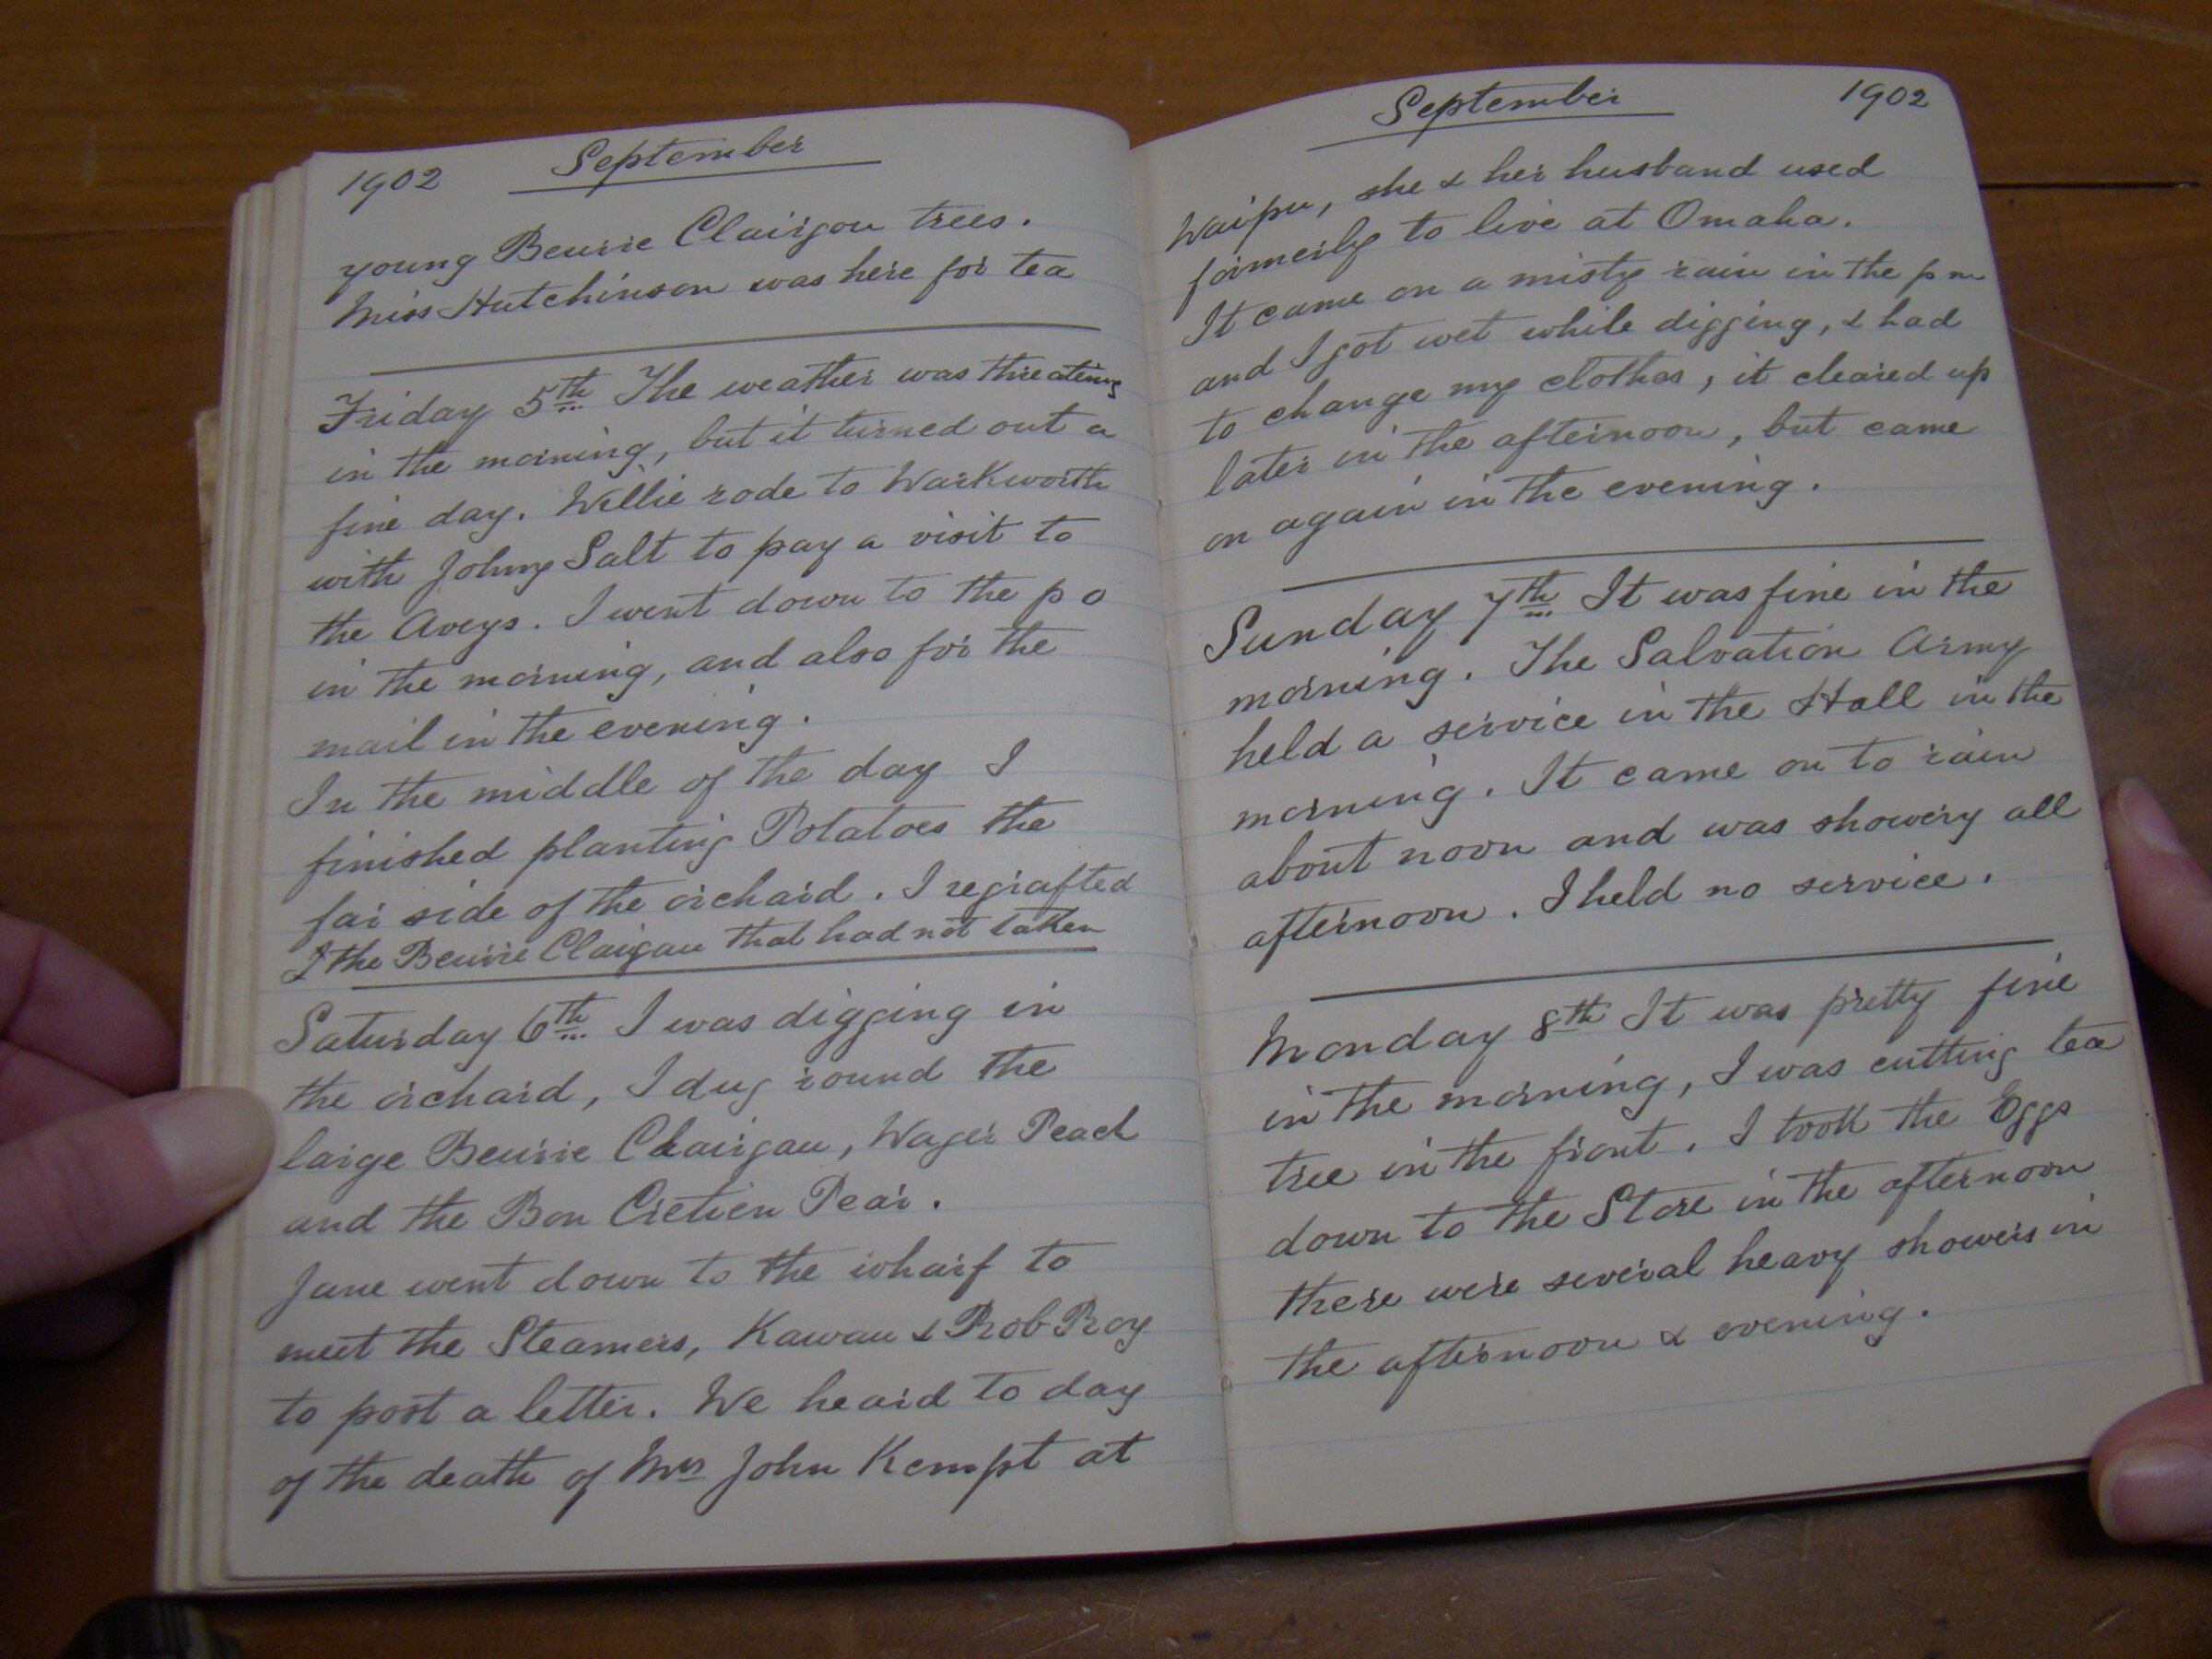 1902 September
young Beurre Clairgou trees.
Miss Hutchinson was here for tea
Friday 5th The weather was threatening
in the morning, but it turned out a
fine day. Willie rode to Warkworth
with Johny Salt to pay a visit to
the Aveys. I went down to the p o
in the morning, and also for the
mail in the evening.
In the middle of the day I
finished planting Potatoes the
far side of the orchard. I regrafted
the Beurre Claigau that had not taken
Saturday 6th I was digging in
the orchard, I dug round the
large Beurre Clairgau, Wager Peach
and the Bon Cretien Pear.
Jane went down to the wharf to
meet the Steamers, Kawau & Rob Roy
to post a letter. We heard to day
of the death of Mrs John Kempt at
September 1902
Waipu, she & her husband used
formerly to live at Omaha.
It came on a misty rain in the p m
and I got wet while digging, & had
to change my clothes, it cleared up
later in the afternoon, but came
on again in the evening.
Sunday 7th It was fine in the
morning. The Salvation Army
held a service in the Hall in the
morning. It came on to rain
about noon and was showery all
afternoon. I held no service.
Monday 8th It was pretty fine
in the morning, I was cutting tea
tree in the front. I took the Eggs
down to the Store in the afternoon
there were several heavy showers in
the afternoon & evening.